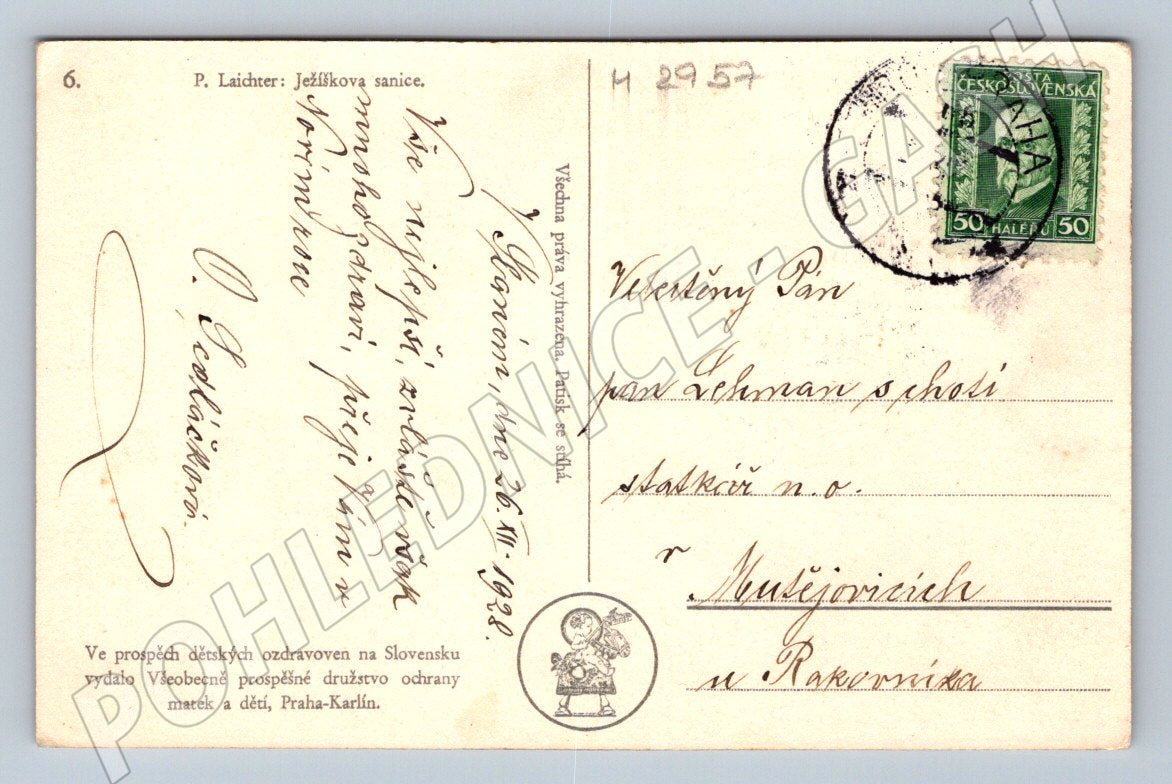 6.
P. Laichter: Ježíškova sanice.
H 2957
POŠTA
ČESKOSLOVENSKÁ
50 HALÉŘŮ 50
PRAHA
Všechna práva vyhrazena. Patisk se stíhá.
V Slaném, dne 26. XII. 1928.
Vše nejlepší, zvláště však
mnoho zdraví, přeje Vám v
Novém roce
O. Sedláčková.
Velectěný Pán
pan Lehman s chotí
statkář n. o.
v
Mutějovicích
u Rakovníka
Ve prospěch dětských ozdravoven na Slovensku
vydalo Všeobecně prospěšné družstvo ochrany
matek a dětí, Praha-Karlín.
POHLEDNICE - GASH